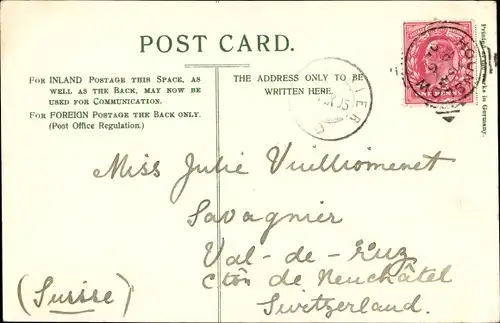 POST CARD.
FOR INLAND POSTAGE THIS SPACE, AS
WELL AS THE BACK, MAY NOW BE
USED FOR COMMUNICATION.
FOR FOREIGN POSTAGE THE BACK ONLY.
(Post Office Regulation.)
THE ADDRESS ONLY TO BE
WRITTEN HERE.
ONE PENNY
Miss Julie Vuilliomenet
Savagnier
Val-de-Ruz
Cton de Neuchâtel
(Suisse)
Switzerland.